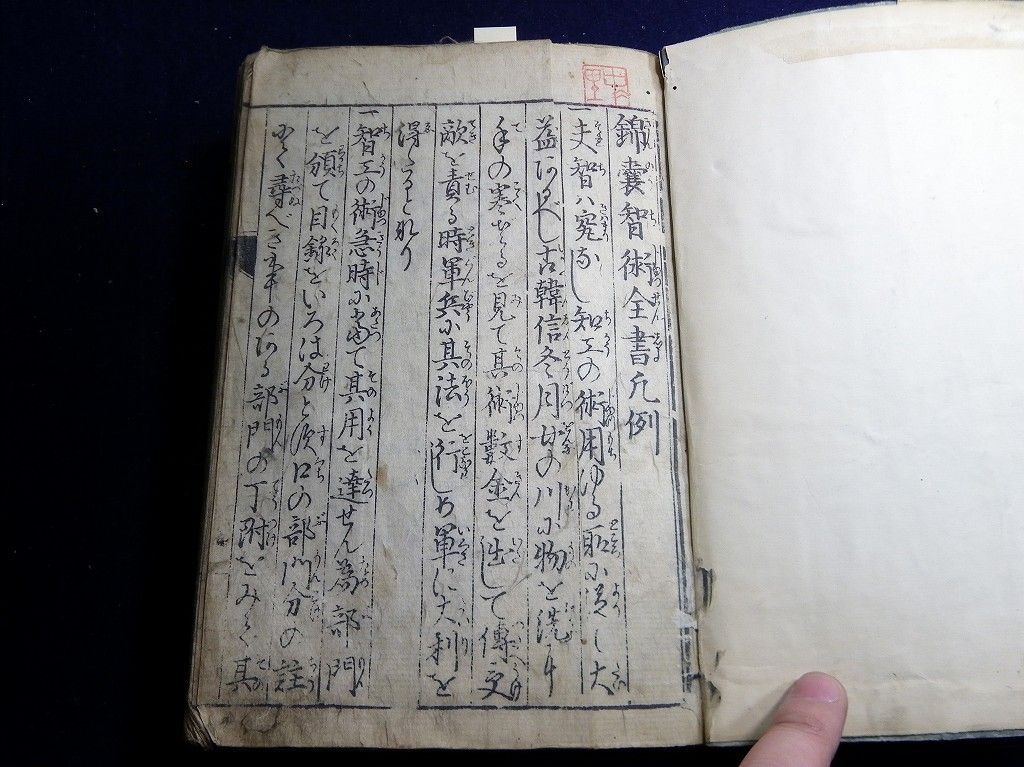 錦囊智術全書凡例
一夫智ハ究なし知工の術用ゆる所に従て大
益あるべし古韓信冬月女の川に物を洗て
手の寒ざるを見て其術数金を出して傳受
敵を責る時軍兵に其法を行しめ軍に大利を
得たるとなり
一智工の術急時に當て其用を達せん為部門
を頒て目録をいろは分と次口の部門分の註
にて尋べき事のある部門の丁附をみて其